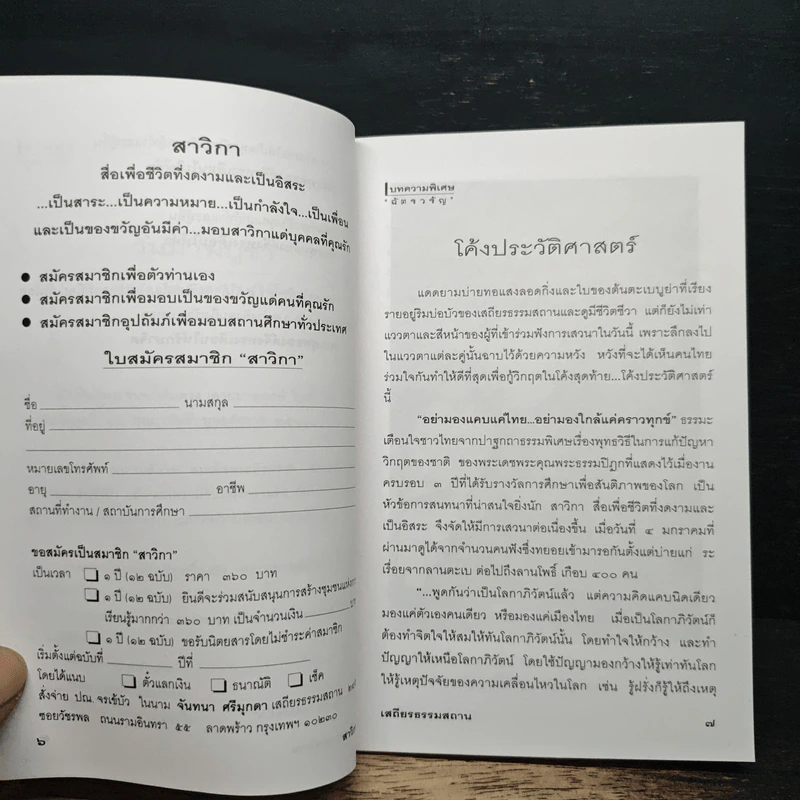 สาวิกา
สื่อเพื่อชีวิตที่งดงามและเป็นอิสระ
...เป็นสาระ...เป็นความหมาย...เป็นกำลังใจ...เป็นเพื่อน
และเป็นของขวัญอันมีค่า...มอบสาวิกาแต่บุคคลที่คุณรัก
● สมัครสมาชิกเพื่อตัวท่านเอง
● สมัครสมาชิกเพื่อมอบเป็นของขวัญแด่คนที่คุณรัก
● สมัครสมาชิกอุปถัมภ์เพื่อมอบสถานศึกษาทั่วประเทศ
ใบสมัครสมาชิก “สาวิกา”
ชื่อ นามสกุล
ที่อยู่
หมายเลขโทรศัพท์
อายุ อาชีพ
สถานที่ทำงาน / สถาบันการศึกษา
ขอสมัครเป็นสมาชิก “สาวิกา”
เป็นเวลา ๑ ปี (๑๒ ฉบับ) ราคา ๓๖๐ บาท
๑ ปี (๑๒ ฉบับ) ยินดีจะร่วมสนับสนุนการสร้างชุมชนแห่งการ
เรียนรู้มากกว่า ๓๖๐ บาท เป็นจำนวนเงิน บ
๑ ปี (๑๒ ฉบับ) ขอรับนิตยสารโดยไม่ชำระค่าสมาชิก
เริ่มตั้งแต่ฉบับที่ ปีที่
โดยได้แนบ ตั๋วแลกเงิน ธนาณัติ เช็ค
สั่งจ่าย ปณ.จรเข้บัว ในนาม จันทนา ศรีมุกดา เสถียรธรรมสถาน
ซอยวัชรพล ถนนรามอินทรา ๕๕ ลาดพร้าว กรุงเทพฯ ๑๐๒๓๐
๖ สาวิกา
บทความพิเศษ
“ฉัตรวรัญ”
โค้งประวัติศาสตร์
แดดยามบ่ายทอแสงลอดกิ่งและใบของต้นตะเบบูย่าที่เรียง
รายอยู่ริมบ่อบัวของเสถียรธรรมสถานและดูมีชีวิตชีวา แต่ก็ยังไม่เท่า
แววตาและสีหน้าของผู้ที่เข้าร่วมฟังการเสวนาในวันนี้ เพราะลึกลงไป
ในแววตาแต่ละคู่นั้นฉาบไว้ด้วยความหวัง หวังที่จะได้เห็นคนไทย
ร่วมใจกันทำให้ดีที่สุดเพื่อกู้วิกฤตในโค้งสุดท้าย...โค้งประวัติศาสตร์
นี้
“อย่ามองแคบแค่ไทย...อย่ามองใกล้แค่คราวทุกข์” ธรรมะ
เตือนใจชาวไทยจากปาฐกถาธรรมพิเศษเรื่องพุทธวิธีในการแก้ปัญหา
วิกฤตของชาติ ของพระเดชพระคุณพระธรรมปิฎกที่แสดงไว้เมื่องาน
ครบรอบ ๓ ปีที่ได้รับรางวัลการศึกษาเพื่อสันติภาพของโลก เป็น
หัวข้อการสนทนาที่น่าสนใจยิ่งนัก สาวิกา สื่อเพื่อชีวิตที่งดงามและ
เป็นอิสระ จึงจัดให้มีการเสวนาต่อเนื่องขึ้น เมื่อวันที่ ๔ มกราคมที่
ผ่านมาดูได้จากจำนวนคนฟังซึ่งทยอยเข้ามารอกันตั้งแต่บ่ายแก่ ระ
เรื่อยจากลานตะเบ ต่อไปถึงลานโพธิ์ เกือบ ๔๐๐ คน
“...พูดกันว่าเป็นโลกาภิวัตน์แล้ว แต่ความคิดแคบนิดเดียว
มองแค่ตัวเองคนเดียว หรือมองแค่เมืองไทย เมื่อเป็นโลกาภิวัตน์ก็
ต้องทำจิตใจให้สมให้ทันโลกาภิวัตน์นั้น โดยทำใจให้กว้าง และทำ
ปัญญาให้เหนือโลกาภิวัตน์ โดยใช้ปัญญามองกว้างให้รู้เท่าทันโลก
ให้รู้เหตุปัจจัยของความเคลื่อนไหวในโลก เช่น รู้ฝรั่งก็รู้ให้ถึงเหตุ
เสถียรธรรมสถาน ๗